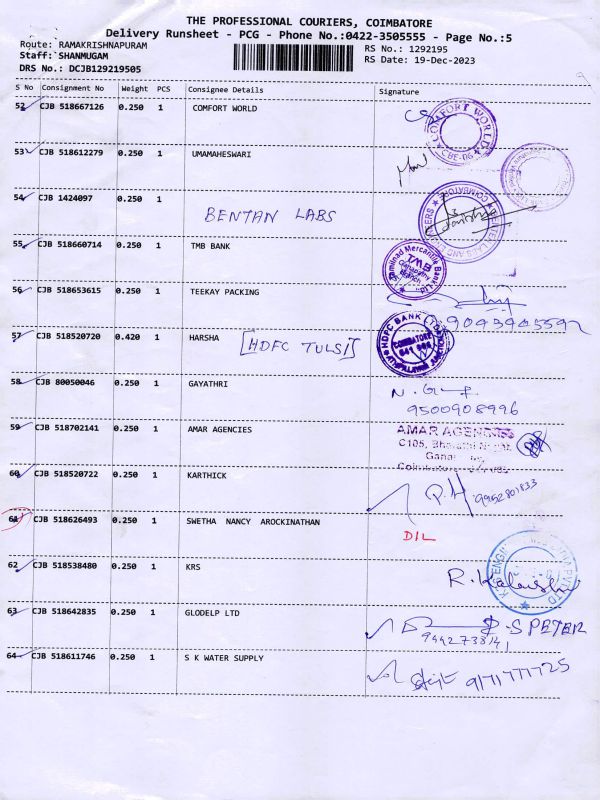 THE PROFESSIONAL COURIERS, COIMBATORE
Delivery Runsheet - PCG - Phone No.:0422-3505555 - Page No.:5
Route: RAMAKRISHNAPURAM
RS No.: 1292195
Staff: SHANMUGAM
RS Date: 19-Dec-2023
DRS No.: DCJB129219505
S No Consignment No Weight PCS Consignee Details Signature
52 CJB 518667126 0.250 1 COMFORT WORLD
COMFORT WORLD
CBE-06
53 CJB 518612279 0.250 1 UMAMAHESWARI
54 CJB 1424097 0.250 1
BENTAN LABS
COIMBATORE
55 CJB 518660714 0.250 1 TMB BANK
Tamilnad Mercantile Bank Ltd
TMB
Ganapathy
Branch
56 CJB 518653615 0.250 1 TEEKAY PACKING
57 CJB 518520720 0.420 1 HARSHA [HDFC TULSI]
HDFC BANK LTD
COIMBATORE
58 CJB 80050046 0.250 1 GAYATHRI
9500908996
59 CJB 518702141 0.250 1 AMAR AGENCIES
AMAR AGENCIES
C105,
60 CJB 518520722 0.250 1 KARTHICK
9952801833
61 CJB 518626493 0.250 1 SWETHA NANCY AROCKINATHAN
DIL
62 CJB 518538480 0.250 1 KRS
63 CJB 518642835 0.250 1 GLODELP LTD
S PETER
64 CJB 518611746 0.250 1 S K WATER SUPPLY